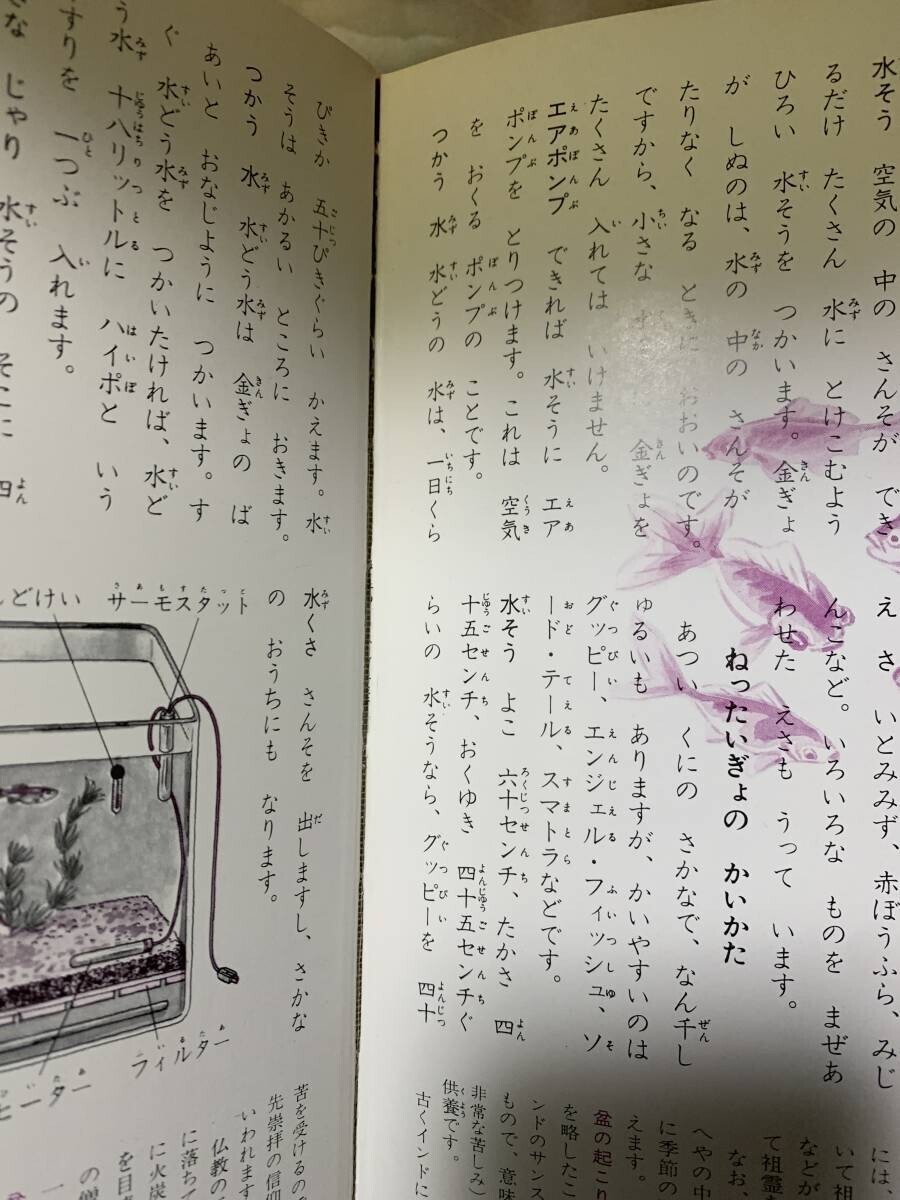 水そう 空気の 中の さんそが でき
るだけ たくさん 水に とけこむよう
ひろい 水そうを つかいます。金ぎょ
が しぬのは、水の 中の さんそが
たりなく なる ときに おおいのです。
ですから、小さな 金ぎょを
たくさん 入れては いけません。
エアポンプ できれば 水そうに エア
ポンプを とりつけます。これは 空気
を おくる ポンプの ことです。
つかう 水 水どうの 水は、一日くら
えさ いとみみず、赤ぼうふら、みじ
んこなど。いろいろな ものを まぜあ
わせた えさも うって います。
ねったいぎょの かいかた
あつい くにの さかなで、なん千し
ゅるいも ありますが、かいやすいのは
グッピー、エンジェル・フィッシュ、ソ
ード・テール、スマトラなどです。
水そう よこ 六十センチ、たかさ 四
十五センチ、おくゆき 四十五センチぐ
らいの 水そうなら、グッピーを 四十
には、
いて祖
などが
て祖霊
なお、
へやの中
に季節の
えます。
盆の起こり
を略したこ
ンドのサンス
もので、意味
非常な苦しみ)
供養です。
古くインドに
びきか 五十びきぐらい かえます。水
そうは あかるい ところに おきます。
つかう 水 水どう水は 金ぎょの ば
あいと おなじように つかいます。す
ぐ 水どう水を つかいたければ、水ど
う水 十八リットルに ハイポと いう
すりを 一つぶ 入れます。
な じゃり 水そうの そこに 四
水くさ さんそを 出しますし、さかな
の おうちにも なります。
サーモスタット
んどけい
フィルター
ヒーター
苦を受けるの
先崇拝の信仰
いわれます
仏教の
に落ちて
に火炭
を目
の僧
一